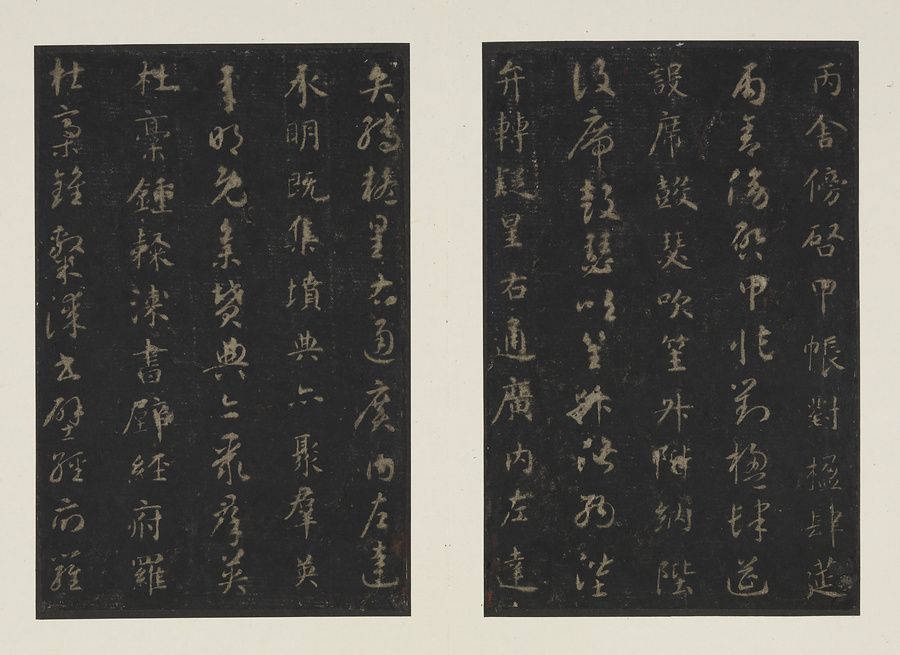 丙舍傍啓甲帳對楹肆筵
丙舍傍啓甲帳對楹肆筵
設席鼓瑟吹笙升階納陛
設席鼓瑟吹笙升階納陛
弁轉疑星右通廣内左達
弁轉疑星右通廣内左達
承明既集墳典亦聚羣英
承明既集墳典亦聚羣英
杜稾鍾隸漆書壁經府羅
杜稾鍾隸漆書壁經府羅